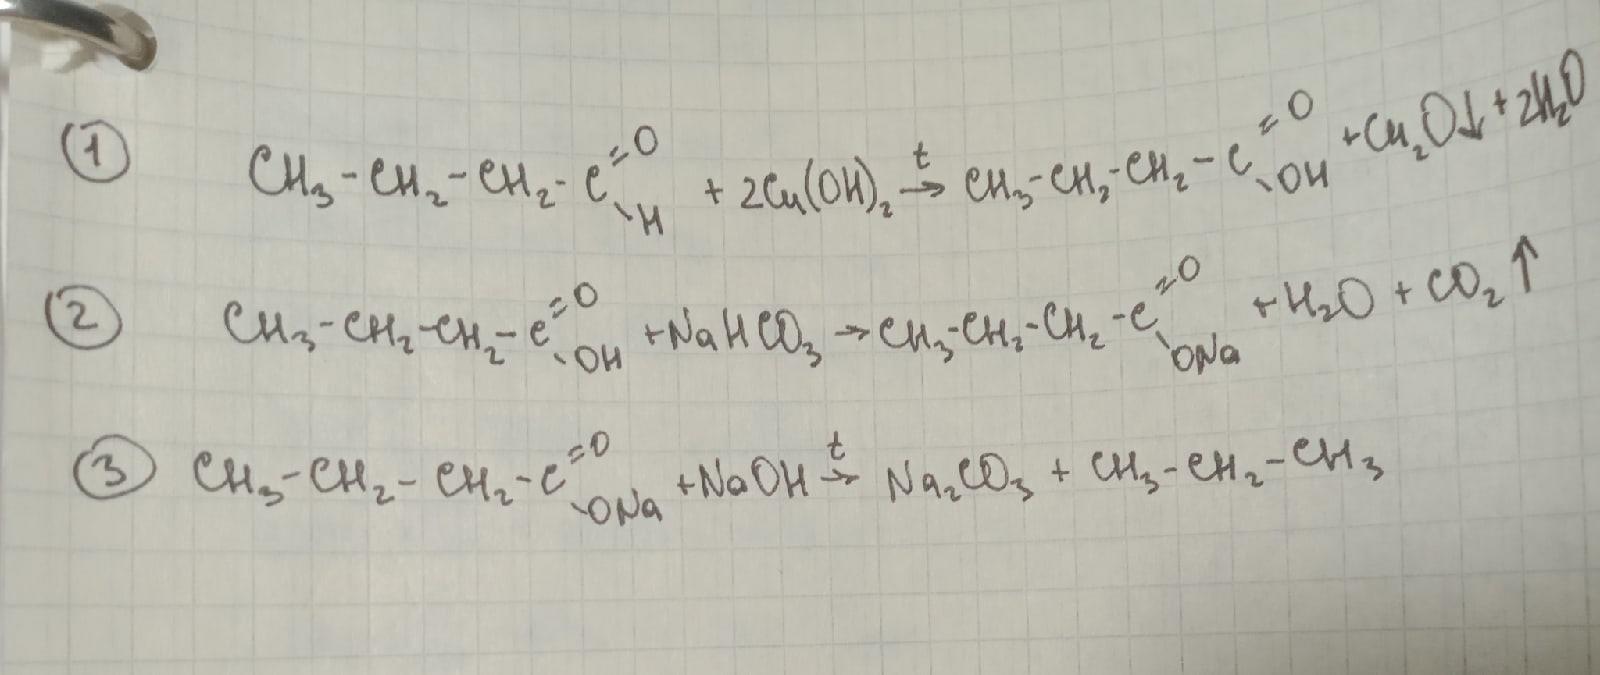 ① CH₃-CH₂-CH₂-C(=O)(-H) + 2Cu(OH)₂ →ᵗ CH₃-CH₂-CH₂-C(=O)(-OH) + Cu₂O↓ + 2H₂O
② CH₃-CH₂-CH₂-C(=O)(-OH) + NaHCO₃ → CH₃-CH₂-CH₂-C(=O)(-ONa) + H₂O + CO₂↑
③ CH₃-CH₂-CH₂-C(=O)(-ONa) + NaOH →ᵗ Na₂CO₃ + CH₃-CH₂-CH₃